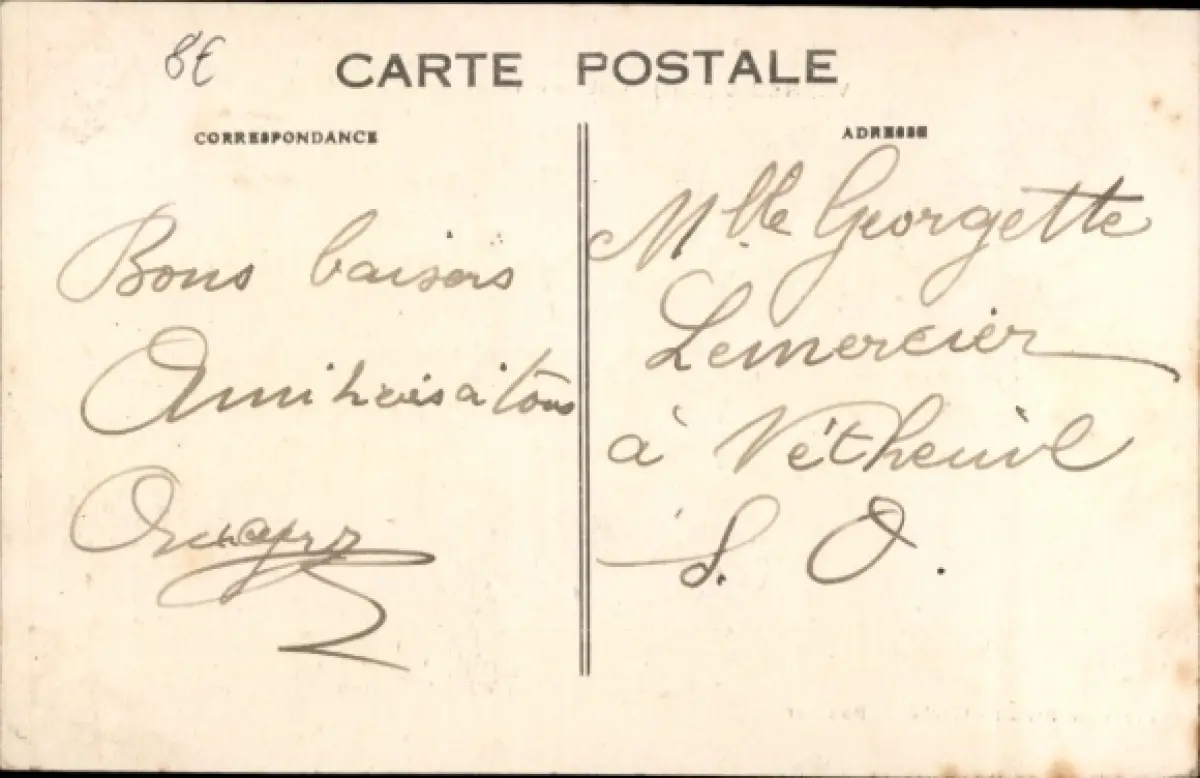 8€
CARTE POSTALE
CORRESPONDANCE
Bons baisers
Amitiées à tous
ADRESSE
Mlle Georgette
Lemercier
à Vétheuil
S. O.